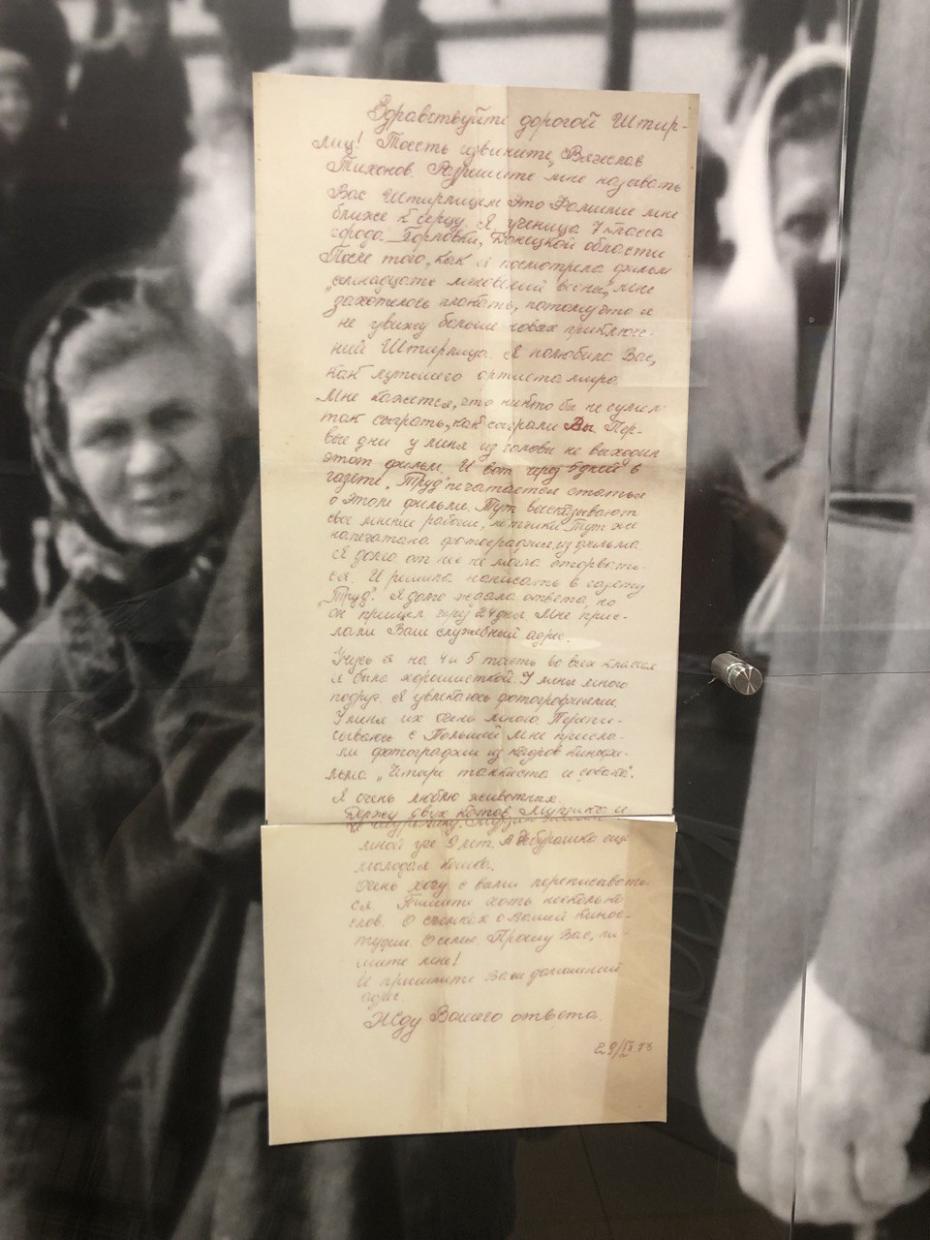 Здравствуйте дорогой Штир-
лиц! Тоесть извините, Вячеслав
Тихонов. Разрешите мне называть
Вас Штирлицем это Фамилие мне
ближе к серцу. Я ученица 7 класса
города Горловки, Донецкой области
После того, как я посмотрела фильм
„семнадцать мгновений весны", мне
захотелось плакать, потому что я
не увижу больше новых приключе-
ний Штирлица. Я полюбила Вас,
как лутшего артиста мира.
Мне кажется, что никто бы не сумел
так сыграть, как сыграли Вы. Пер-
вые дни у меня из головы не выходил
этот фильм. И вот через 5 дней в
газете „Труд" печатается статья
о этом фильме. Тут высказывают
свое мнение рабочие, Тут же
напечатана фотография из фильма.
Я долго от неё не могла оторвать-
ся. И решила написать в газету
„Труд". Я долго ждала ответа, но
он пришел через 24 дня. Мне прис-
лали Ваш служебный адрес.
Учусь я на 4 и 5 тоесть во всех классах
я была хорошисткой. У меня много
подруг. Я увлекаюсь фотографиями.
У меня их очень много. Перепи-
сываюсь с Польшей мне присла-
ли фотографии из кадров кинофи-
льма „Четыре танкиста и собака".
Я очень люблю животных.
Держу двух котов Мурчика и
мной уже 9 лет. А Чебурашка ещё
молодая кошка.
Очень хочу с вами переписывать-
ся. Пишите хоть несколько
слов. О съемках о Вашей кинос-
тудии. О семье. Прошу Вас, пи-
шите мне!
И пришлите Ваш домашний
адрес.
Жду Вашего ответа.
29/IX 73